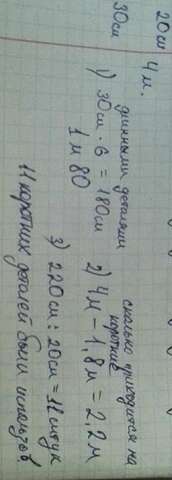 20см 4 м.
30см
длинными деталями
1) 30см · 6 = 180см
1 м 80
сколько приходится на
короткие
2) 4м - 1,8м = 2,2м
3) 220см : 20см = 11 штук
11 коротких деталей были использов